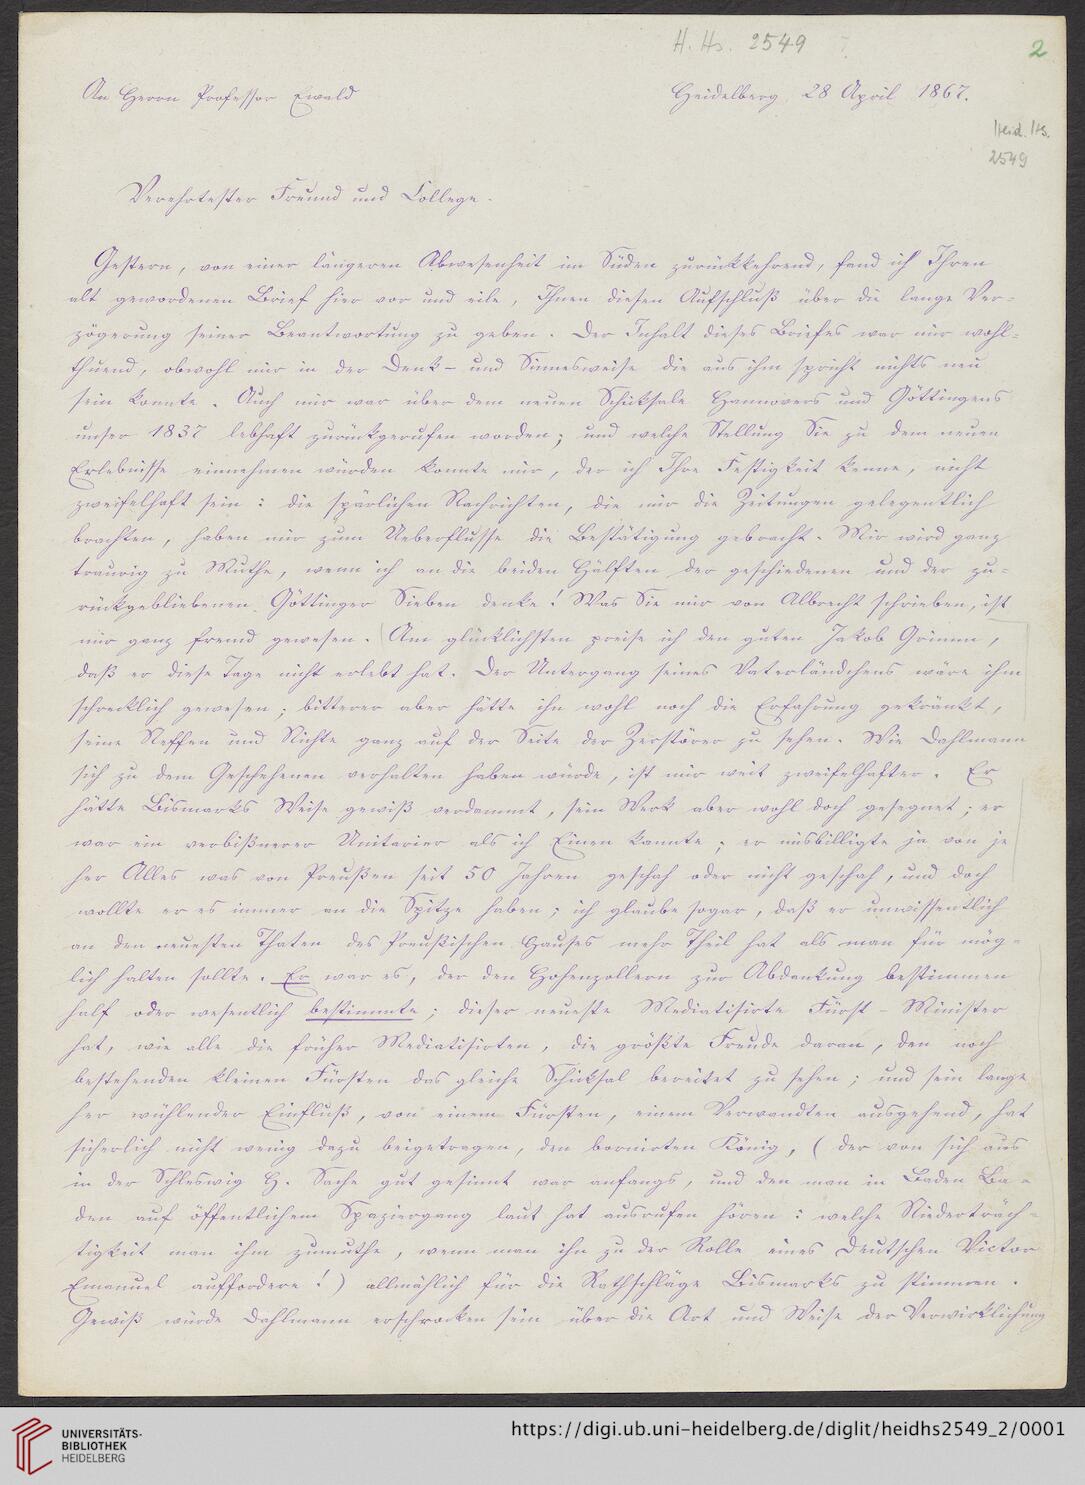 H. Hs. 2549
2
An Herrn Professor Ewald
Heidelberg, 28 April 1867.
Heid. Hs.
2549
Verehrtester Freund und College.
Gestern, von einer längeren Abwesenheit im Süden zurückkehrend, fand ich Ihren
alt gewordenen Brief hier vor und eile, Ihnen diesen Aufschluß über die lange Ver-
zögerung seiner Beantwortung zu geben. Der Inhalt dieses Briefes war mir wohl-
thuend, obwohl mir in der Denk- und Sinnesweise die aus ihm spricht nichts neu
sein konnte. Auch mir war über dem neuen Schicksale Hannovers und Göttingens
unser 1837 lebhaft zurückgerufen worden; und welche Stellung Sie zu dem neuen
Erlebnisse einnehmen würden konnte mir, der ich Ihre Festigkeit kenne, nicht
zweifelhaft sein: die spärlichen Nachrichten, die mir die Zeitungen gelegentlich
brachten, haben mir zum Ueberflusse die Bestätigung gebracht. Mir wird ganz
traurig zu Muthe, wenn ich an die beiden Hälften der geschiedenen und der zu-
rückgebliebenen Göttinger Sieben denke! Was Sie mir von Albrecht schrieben, ist
mir ganz fremd gewesen. Am glücklichsten preise ich den guten Jakob Grimm,
daß er diese Tage nicht erlebt hat. Der Untergang seines Vaterländchens wäre ihm
schrecklich gewesen; bitterer aber hätte ihn wohl noch die Erfahrung gekränkt,
seine Neffen und Nichte ganz auf der Seite der Zerstörer zu sehen. Wie Dahlmann
sich zu dem Geschehenen verhalten haben würde, ist mir weit zweifelhafter. Er
hätte Bismarks Weise gewiß verdammt, sein Werk aber wohl doch gesegnet; er
war ein verbißnerer Unitarier als ich Einen kannte; er misbilligte ja von je
her Alles was von Preußen seit 50 Jahren geschah oder nicht geschah, und doch
wollte er es immer an die Spitze haben; ich glaube sogar, daß er unwissentlich
an den neuesten Thaten des Preußischen Hauses mehr Theil hat als man für mög-
lich halten sollte. Er war es, der den Hohenzollern zur Abdankung bestimmen
half oder wesentlich bestimmte; dieser neueste Mediatisirte Fürst-Minister
hat, wie alle die früher Mediatisirten, die größte Freude daran, den noch
bestehenden kleinen Fürsten das gleiche Schicksal bereitet zu sehen; und sein lange
her wühlender Einfluß, von einem Fürsten, einem Verwandten ausgehend, hat
sicherlich nicht wenig dazu beigetragen, den bornirten König, (der von sich aus
in der Schleswig H. Sache gut gesinnt war anfangs, und den man in Baden Ba-
den auf öffentlichem Spaziergang laut hat ausrufen hören: welche Niederträch-
tigkeit man ihm zumuthe, wenn man ihn zu der Rolle eines Deutschen Victor
Emanuel auffordere!) allmählich für die Rathschläge Bismarks zu stimmen.
Gewiß würde Dahlmann erschrocken sein über die Art und Weise der Verwirklichung
UNIVERSITÄTS-
BIBLIOTHEK
HEIDELBERG
https://digi.ub.uni-heidelberg.de/diglit/heidhs2549_2/0001